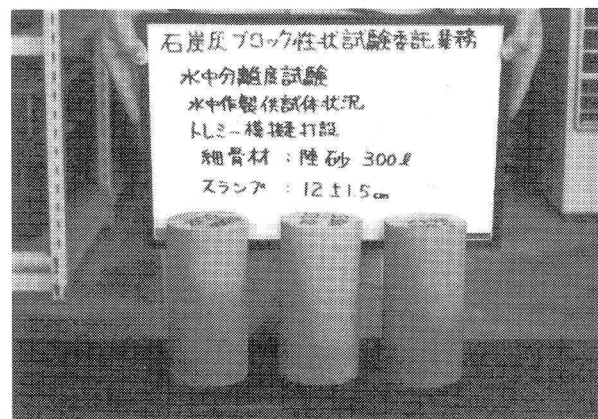 石炭灰ブロック性状試験委託業務
水中分離度試験
水中作製供試体状況
トレミー模擬打設
細骨材：陸砂 300ℓ
スランプ：12±1.5cm